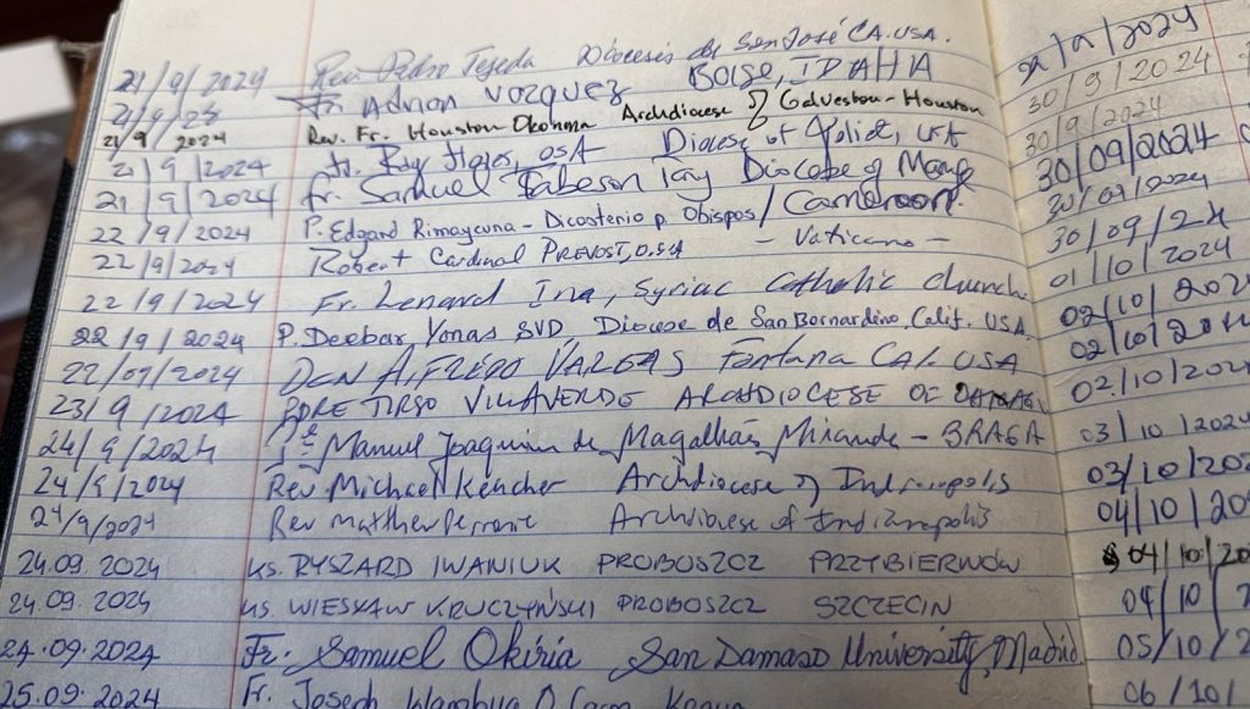 21/9/2024 Rev. Pedro Tejeda Diócesis de San José CA. USA.
21/9/24 Fr. Adrian Vazquez BOISE, IDAHA
21/9 2024 Rev. Fr. Houston Okonma Archdiocese of Galveston-Houston
21/9/2024 Fr. Ray Flores, OSA Diocese of Joliet, USA
21/9/2024 fr. Samuel Tabeson Diocese of
22/9/2024 P. Edgard Rimaycuna - Dicasterio p. Obispos / Cameroon.
22/9/2024 Robert Cardinal PREVOST, O.S.A - Vaticano -
22/9/2024 Fr. Lenard Ina, Syriac Catholic church
22/9/2024 P. Deebar Yonas SVD, Diocese de San Bernardino, Calif. USA
22/09/2024 DCN ALFREDO VARGAS Fontana CAL USA
23/9/2024 PDRE TIRSO VILLAVERDE ARCHDIOCESE OF
24/9/2024 Manuel Joaquim de Magalhães Miranda - BRAGA
24/9/2024 Rev. Michael Keucher Archdiocese of Indianapolis
24/9/2024 Rev Matthew Perronie Archdiocese of Indianapolis
24.09.2024 KS. RYSZARD IWANIUK PROBOSZCZ PRZYBIERNÓW
24.09.2024 KS. WIESŁAW KRUCZYŃSKI PROBOSZCZ SZCZECIN
24.09.2024 Fr. Samuel Okiria San Damaso University, Madrid
25.09.2024 Fr. Joseph Wambua O Carm Kenya
30/9/2024
30/9/2024
30/09/2024
30/09/2024
30/09/24
01/10/2024
02/10/202
02/10/20
02/10/202
03/10/2024
03/10/202
04/10/20
04/10/20
04/10/2
05/10/2
06/10/